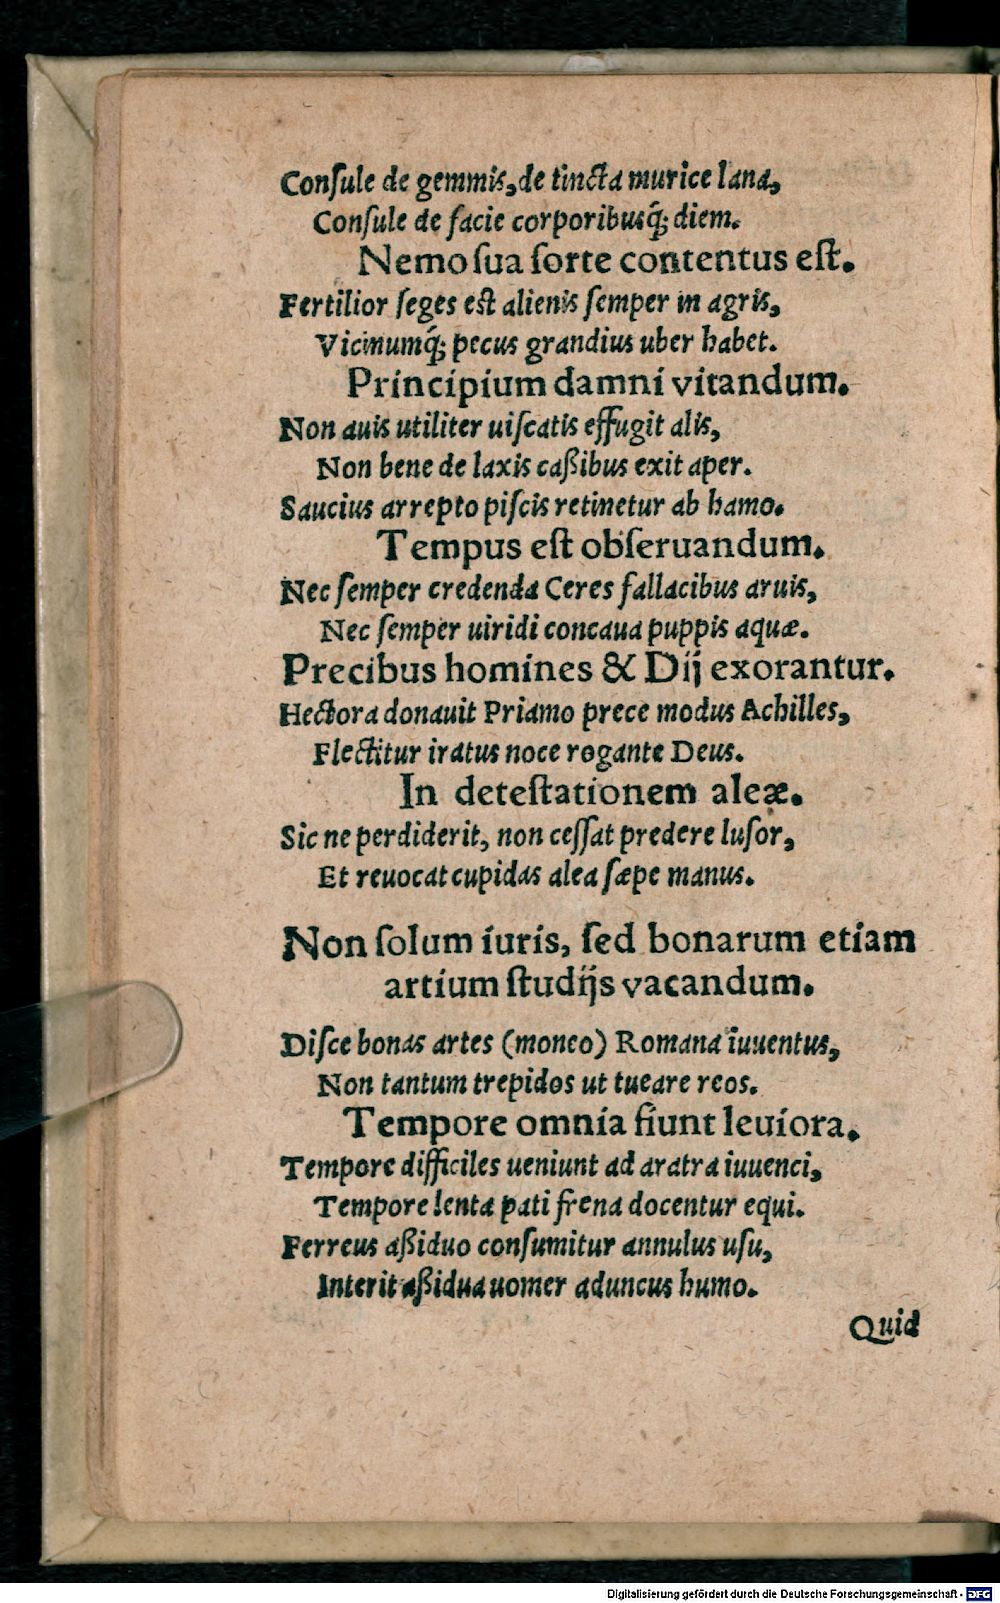 Conſule de gemmis, de tincta murice lana,
Conſule de facie corporibusq́; diem.
Nemo ſua ſorte contentus eſt.
Fertilior ſeges eſt alienis ſemper in agris,
Vicinumq́; pecus grandius uber habet.
Principium damni vitandum.
Non auis utiliter uiſcatis effugit alis,
Non bene de laxis caßibus exit aper.
Saucius arrepto piſcis retinetur ab hamo.
Tempus eſt obſeruandum.
Nec ſemper credenda Ceres fallacibus aruis,
Nec ſemper uiridi concaua puppis aquæ.
Precibus homines & Dij exorantur.
Hectora donauit Priamo prece modus Achilles,
Flectitur iratus noce rogante Deus.
In deteſtationem aleæ.
Sic ne perdiderit, non ceſſat predere luſor,
Et reuocat cupidas alea ſæpe manus.
Non ſolum iuris, ſed bonarum etiam
artium ſtudijs vacandum.
Diſce bonas artes (moneo) Romana iuuentus,
Non tantum trepidos ut tueare reos.
Tempore omnia fiunt leuiora.
Tempore difficiles ueniunt ad aratra iuuenci,
Tempore lenta pati frena docentur equi.
Ferreus aßiduo conſumitur annulus uſu,
Interit aßidua uomer aduncus humo.
Quid
Digitalisierung gefördert durch die Deutsche Forschungsgemeinschaft - DFG